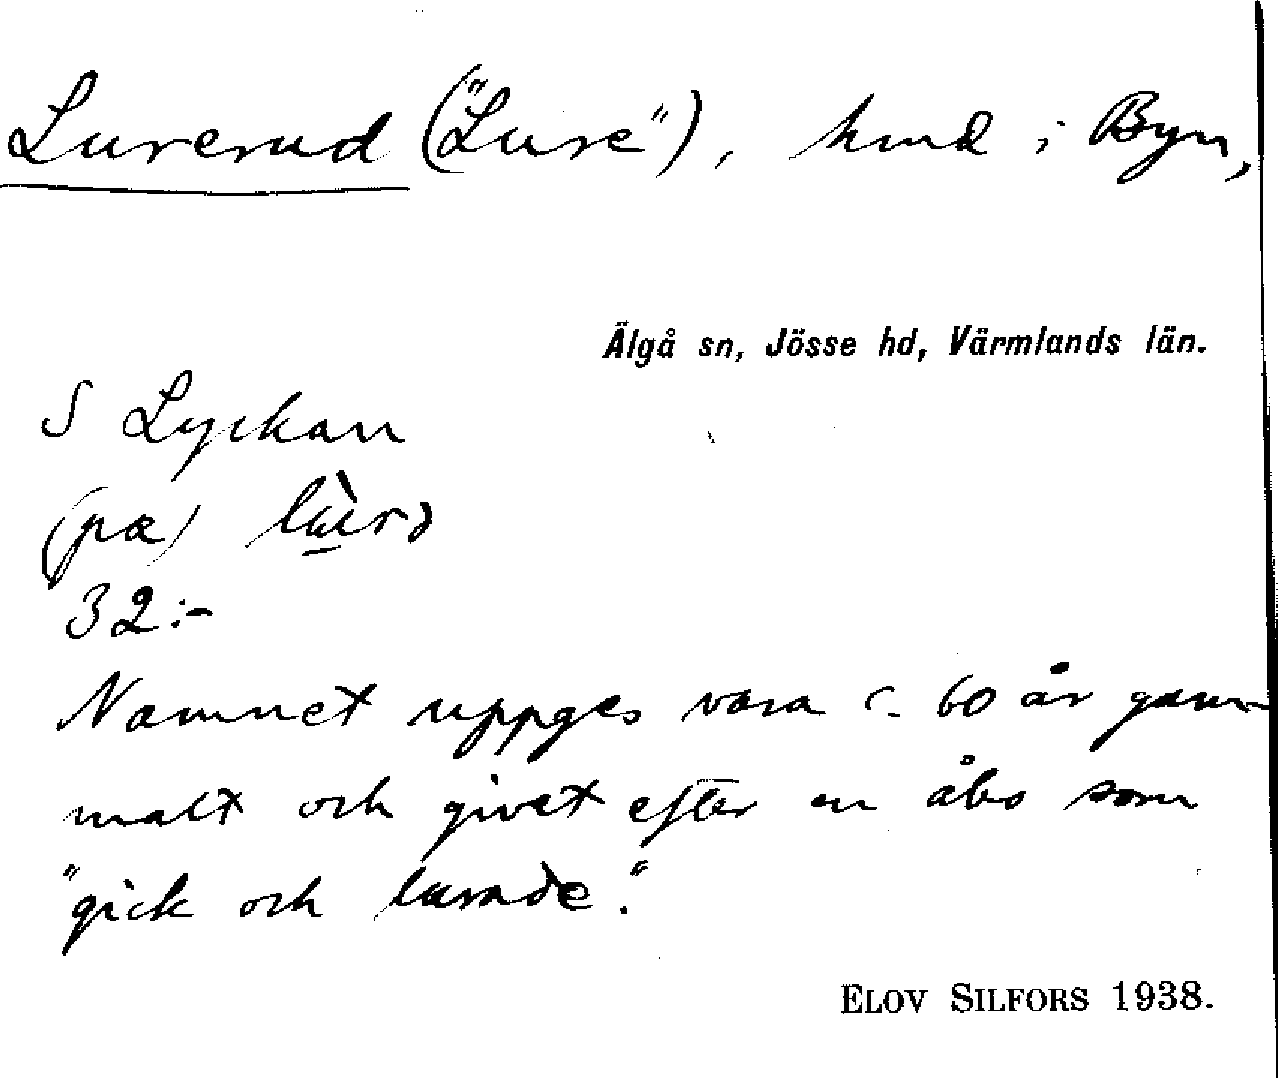 Lurerud ("Lure"), hmd i Byn,
Älgå sn, Jösse hd, Värmlands län.
S Lyckan
(pæ)
32:-
Namnet uppges vara c. 60 år gam-
malt och givet efter en åbo som
"gick och lurade."
ELOV SILFORS 1938.